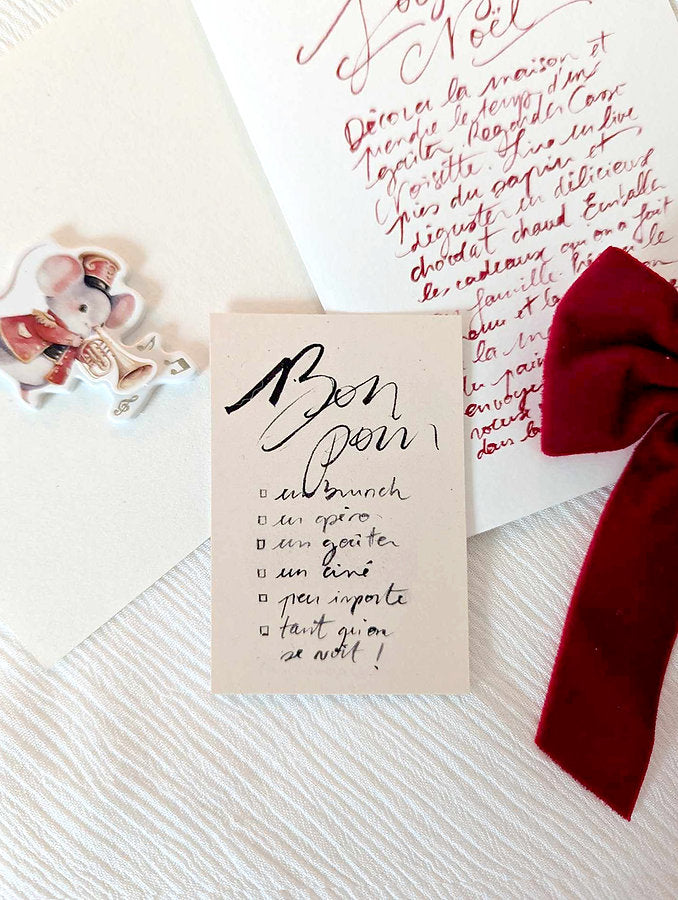 Noël
Décorer la maison et
prendre le temps d'un
goûter. Regarder Casse
Noisette. Lire un livre
près du sapin et
déguster un délicieux
chocolat chaud Emballer
les cadeaux qu'on a fait
famille. le
et la
la
du pain
envoyer
voeux
dans la
Bon
pour
un brunch
un apéro
un goûter
un ciné
peu importe
tant qu'on
se voit !